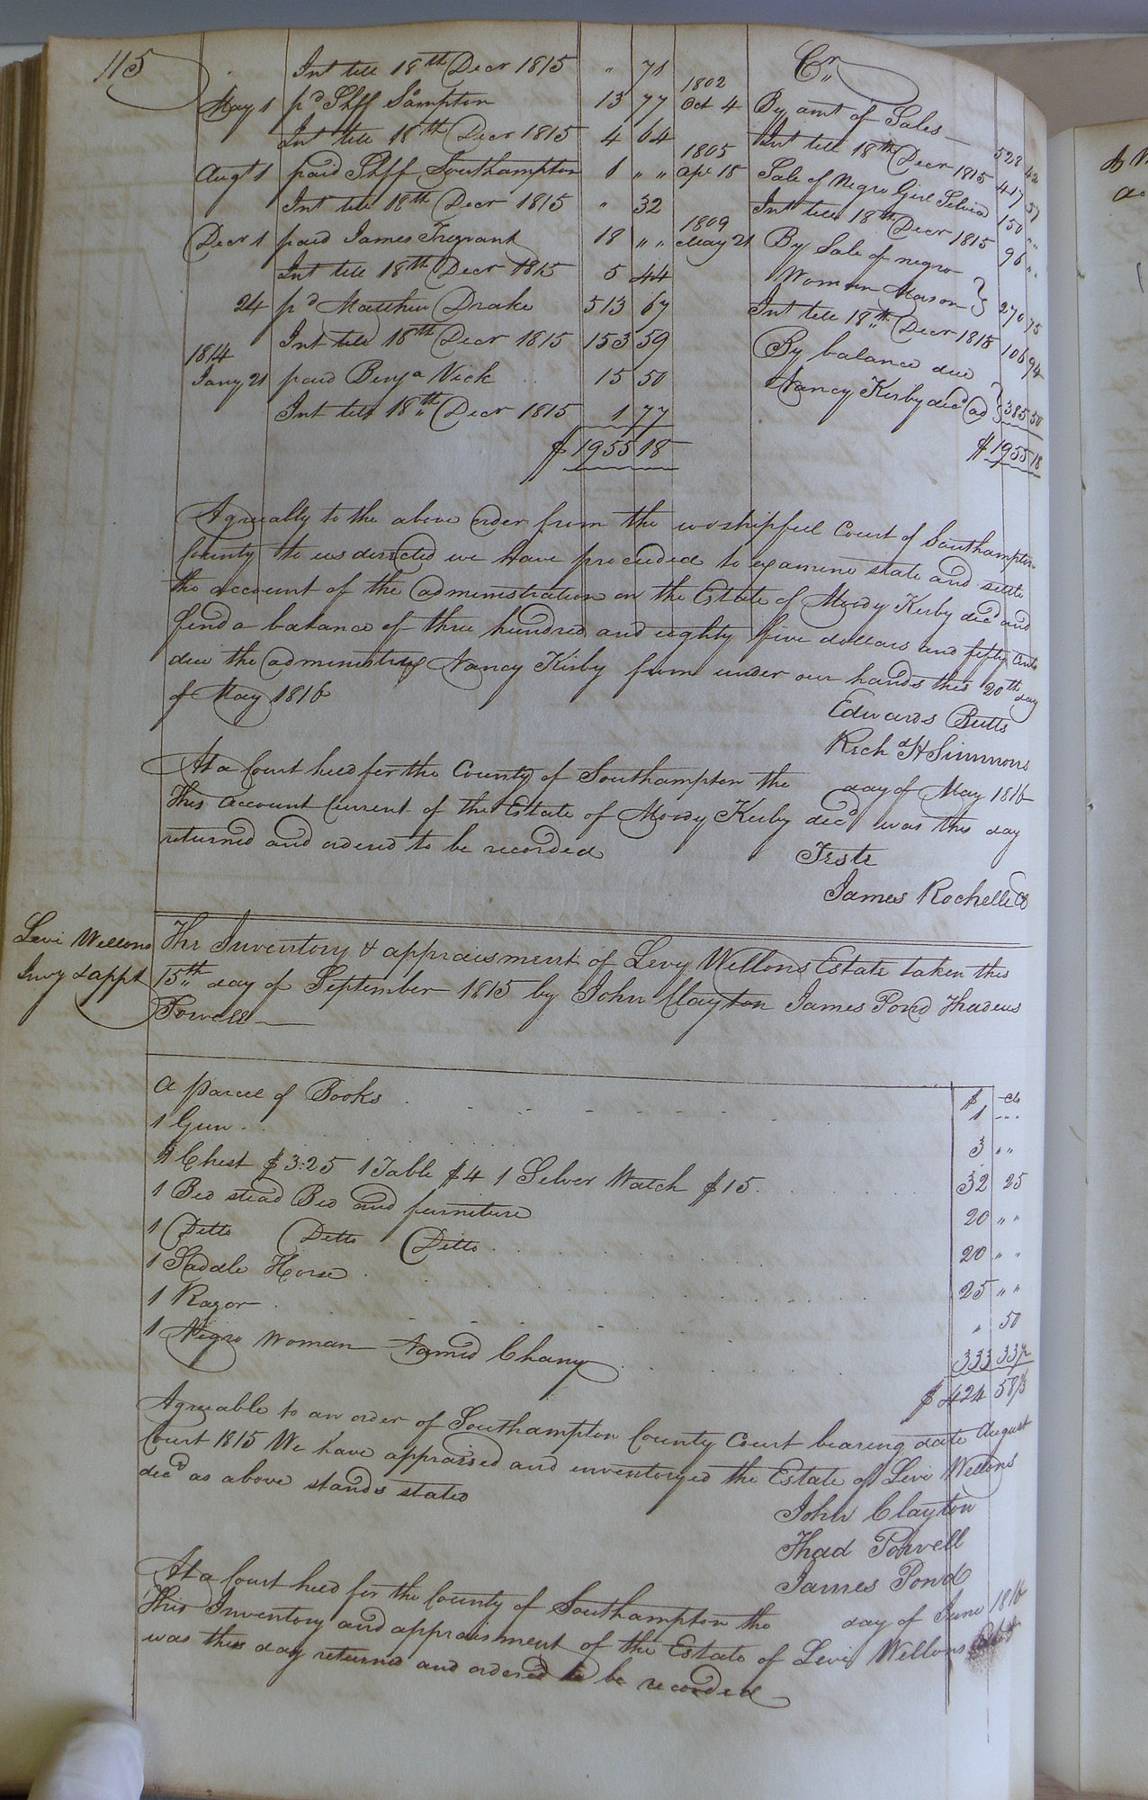 115
Int till 18th Decr 1815 " 71
May 1 pd Shff Sampton 13 77
Int till 18th Decr 1815 4 64
Augt 1 paid Shff Southampton 1 " "
Int till 18th Decr 1815 " 32
Decr 1 paid James Tregnant 18 " "
Int till 18th Decr 1815 5 44
24 pd Matthew Drake 513 67
Int till 18th Decr 1815 153 59
1814
Jany 21 paid Benja Vick 15 50
Int till 18th Decr 1815 1 77
$ 1955 18
Cr
1802
Oct 4 By amt of Sales 528 42
Int till 18th Decr 1815 417 57
1805
Apl 15 Sale of Negro Girl Selvia 150 "
Int till 18th Decr 1815 96 "
1809
May 21 By Sale of negro
Woman Mason } 270 75
Int till 18th Decr 1815 106 94
By balance due
Nancy Kirby decd ad } 385 50
$ 1955 18
Agreeally to the above order from the worshipfull Court of Southampton
County to us directed we have proceeded to examine state and settle
the account of the administration on the Estate of Moody Kirby decd and
find a balance of three hundred and eighty five dollars and fifty Cents
due the administrix Nancy Kirby from under our hands this 20th day
of May 1816
Edwards Butts
Richd H Simmons
At a Court held for the County of Southampton the day of May 1816
This Account Current of the Estate of Moody Kirby decd was this day
returned and ordered to be recorded
Teste
James Rochelle C
Levi Wellons
Invy & appt
The Inventory & appraisment of Levy Wellons Estate taken this
15th day of September 1815 by John Clayton James Pond Thadeus
Powell
$ cts
A parcel of Books 1 --
1 Gun 3 " "
1 Chest $3:25 1 Table $4 1 Silver Watch $15 32 25
1 Bed stead Bed and furniture 20 " "
1 Ditto Ditto Ditto 20 " "
1 Saddle Horse 25 " "
1 Razor " 50
1 Negro Woman Named Chany 333 33½
$ 424 58½
Agreeable to an order of Southampton County Court bearing date August
Court 1815 We have appraised and inventoryed the Estate of Levi Wellons
decd as above stands stated
John Clayton
Thad Powell
James Pond
At a Court held for the County of Southampton the day of June 1816
This Inventory and appraisment of the Estate of Levi Wellons
was this day returned and ordered to be recorded